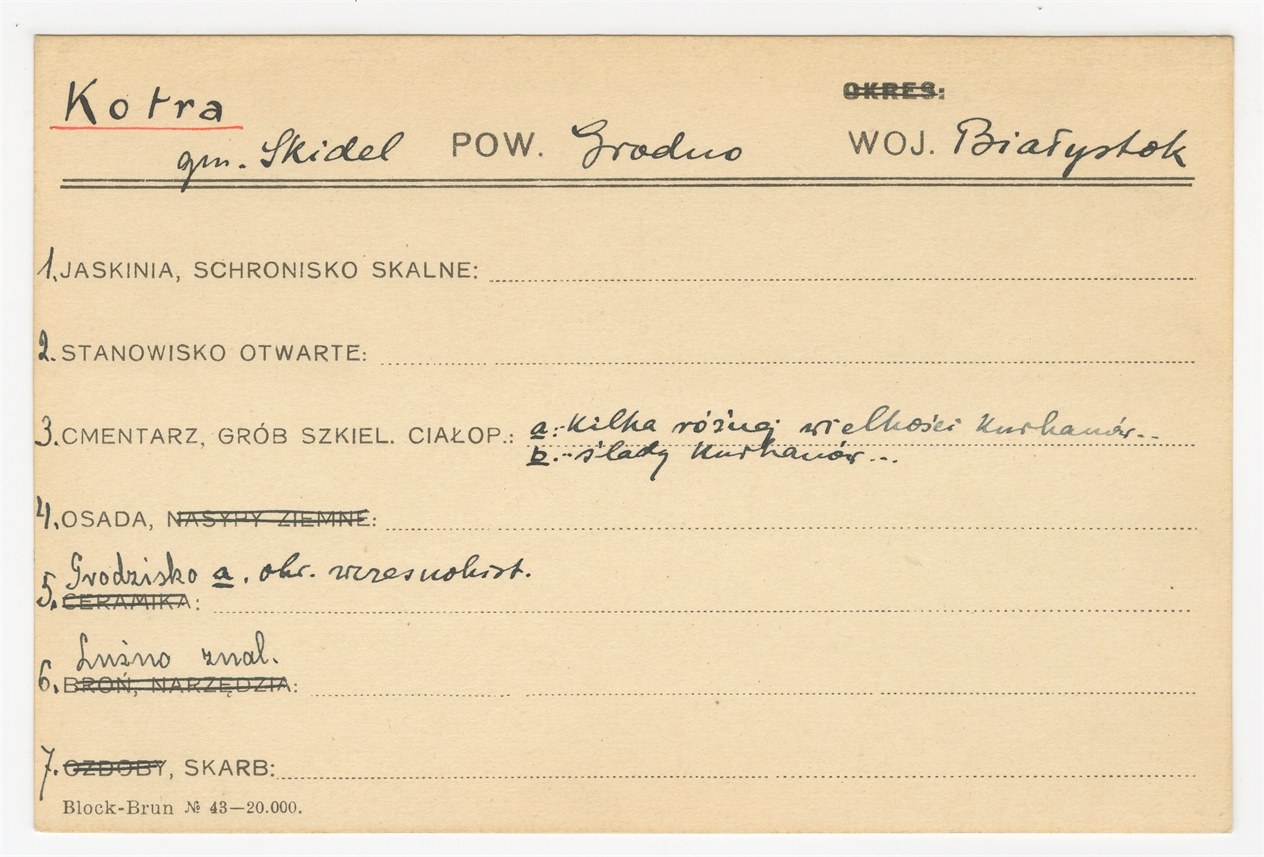 Kotra
OKRES:
gm. Skidel POW. Grodno WOJ. Białystok
1. JASKINIA, SCHRONISKO SKALNE:
2. STANOWISKO OTWARTE:
3. CMENTARZ, GRÓB SZKIEL. CIAŁOP.: a.-Kilka różnej wielkości kurhanów...
b.-ślady kurhanów...
4. OSADA, NASYPY ZIEMNE:
Grodzisko a. okr. wczesnohist.
5. CERAMIKA:
Luźno znal.
6. BROŃ, NARZĘDZIA:
7. OZDOBY, SKARB:
Block-Brun № 43—20.000.